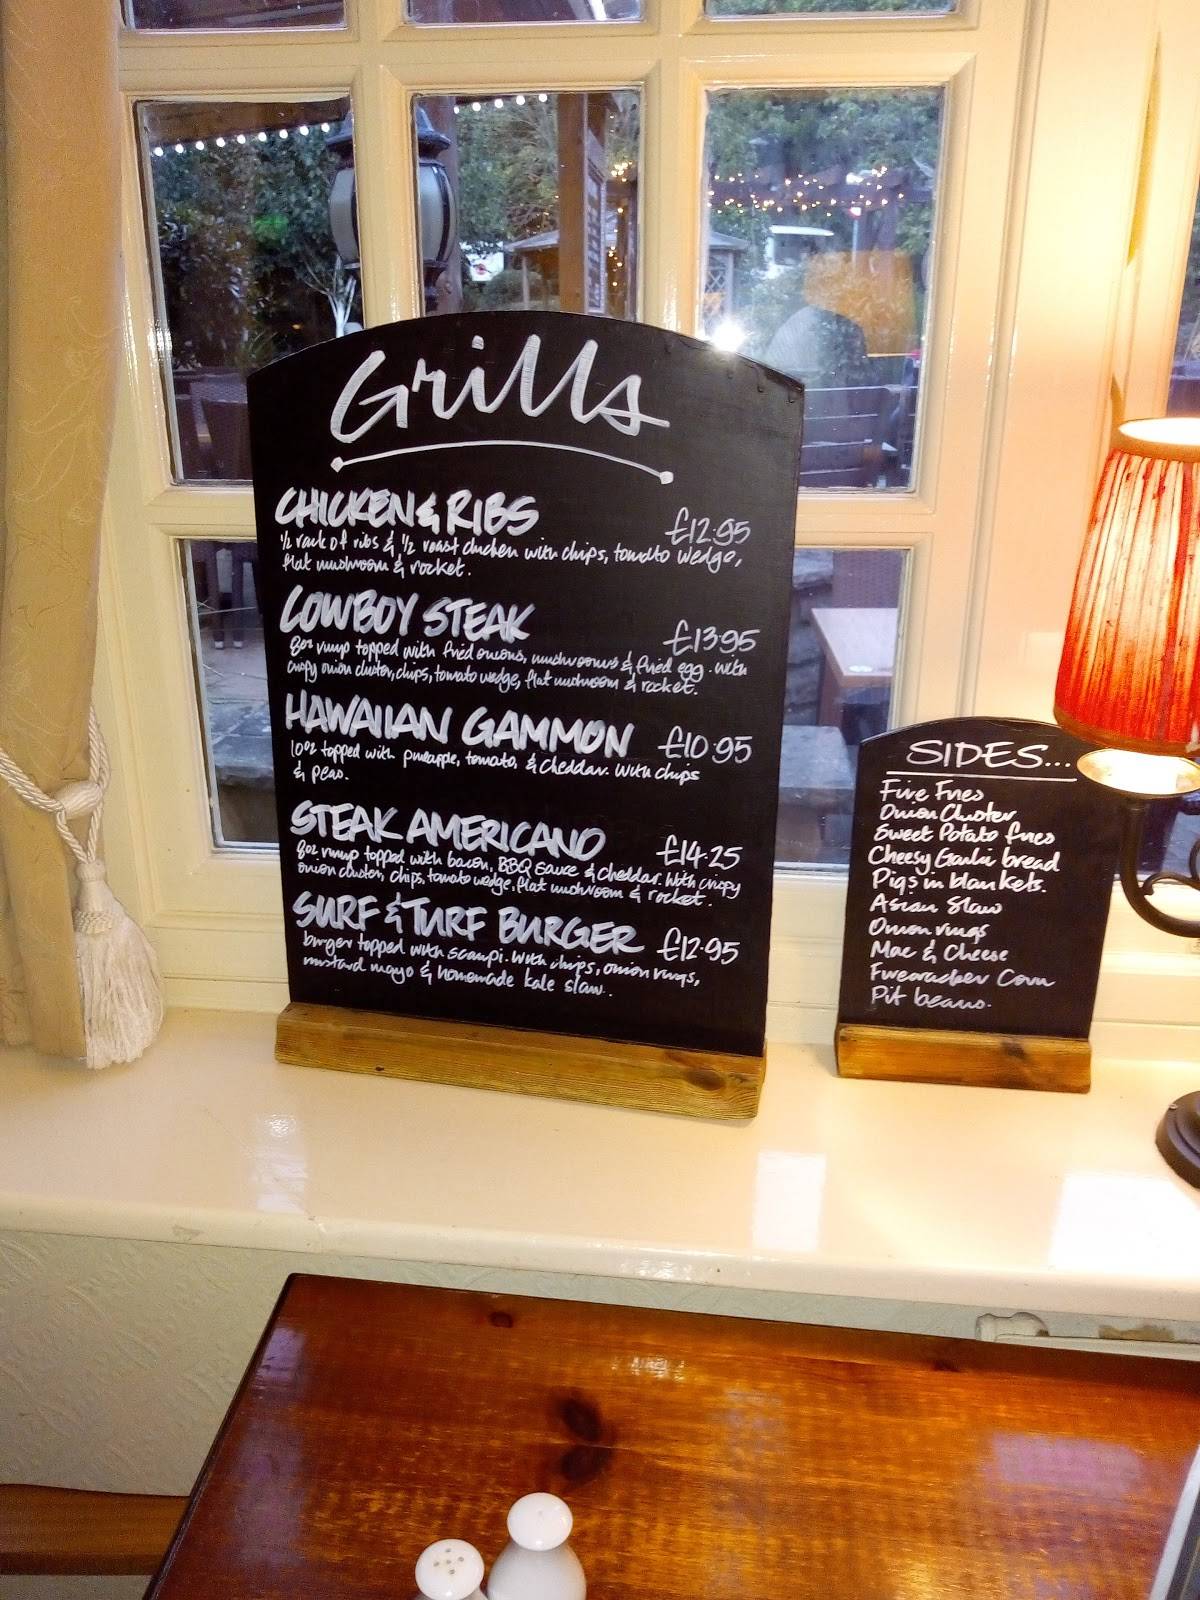 Grills
CHICKEN & RIBS £12.95
1/2 rack of ribs & 1/2 roast chicken with chips, tomato wedge,
flat mushroom & rocket.
COWBOY STEAK £13.95
8oz rump topped with fried onions, mushrooms & fried egg. with
crispy onion cluster, chips, tomato wedge, flat mushroom & rocket.
HAWAIIAN GAMMON £10.95
10oz topped with pineapple, tomato, & cheddar. with chips
& peas.
STEAK AMERICANO £14.25
8oz rump topped with bacon, BBQ sauce & cheddar. With crispy
onion cluster, chips, tomato wedge, flat mushroom & rocket.
SURF & TURF BURGER £12.95
burger topped with scampi. With chips, onion rings,
mustard mayo & homemade kale slaw..
SIDES...
Fire Fries
Onion Cluster
Sweet Potato fries
Cheesy Garlic bread
Pigs in blankets.
Asian Slaw
Onion rings
Mac & Cheese
Firecracker Corn
Pit beans.